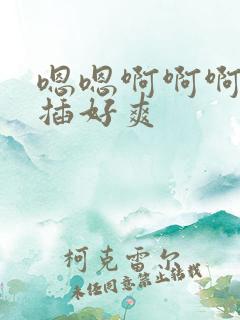 嗯嗯啊啊啊
插好爽
柯克雷尔
未经同意禁止转载